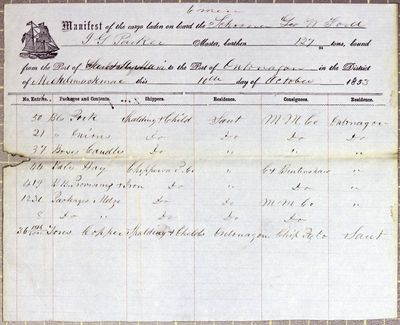 Manifest of the cargo laden on board the Schooner Geo W Ford
Master, burthen 127 tons, bound
from the Port of to the Port of Ontonagon in the District
of Michilimackinac this 10th day of October 1853
No. Entries. Packages and Contents. Shippers. Residence. Consignees. Residence.
30 Bls Pork Spalding & Childs Saut M M Co Ontonagon
21 " Onions Do Do Do Do
37 Boxes Candles Do " " "
44 Bales Hay Chippewa P. Co " C &
419 Iron Do " Do "
1231 Packages Mdze Do Do M M Co "
8 Do " Do Do Do
Tons Copper Spalding & Childs Ontonagon Chip P. Co Saut